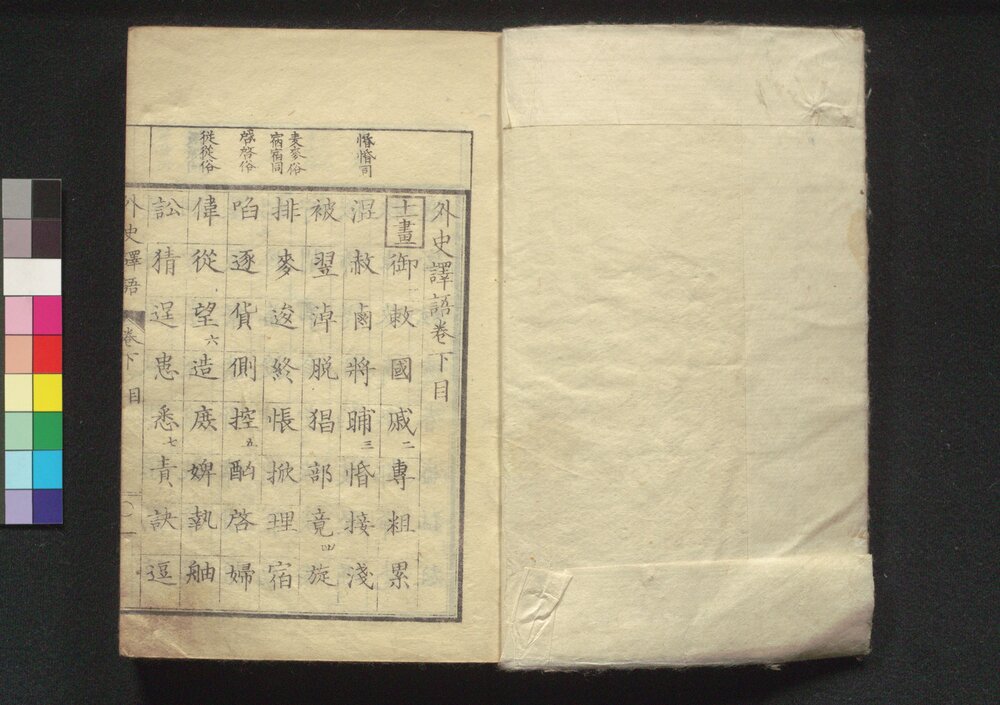 惛惛同
麦麥俗
宿宿同
啓啓俗
従從俗
外史譯語卷下目
十一畫 御一敕國戚二專粗累
赦鹵將晡三惛接淺
被翌淖脫猖部竟四旋
排麥逡終悵掀理宿
啗逐貨側控五啓婦
偉從望六造庶婢執舳
訟猜逞患悉七責訣逗
外史譯語 卷下 目 一